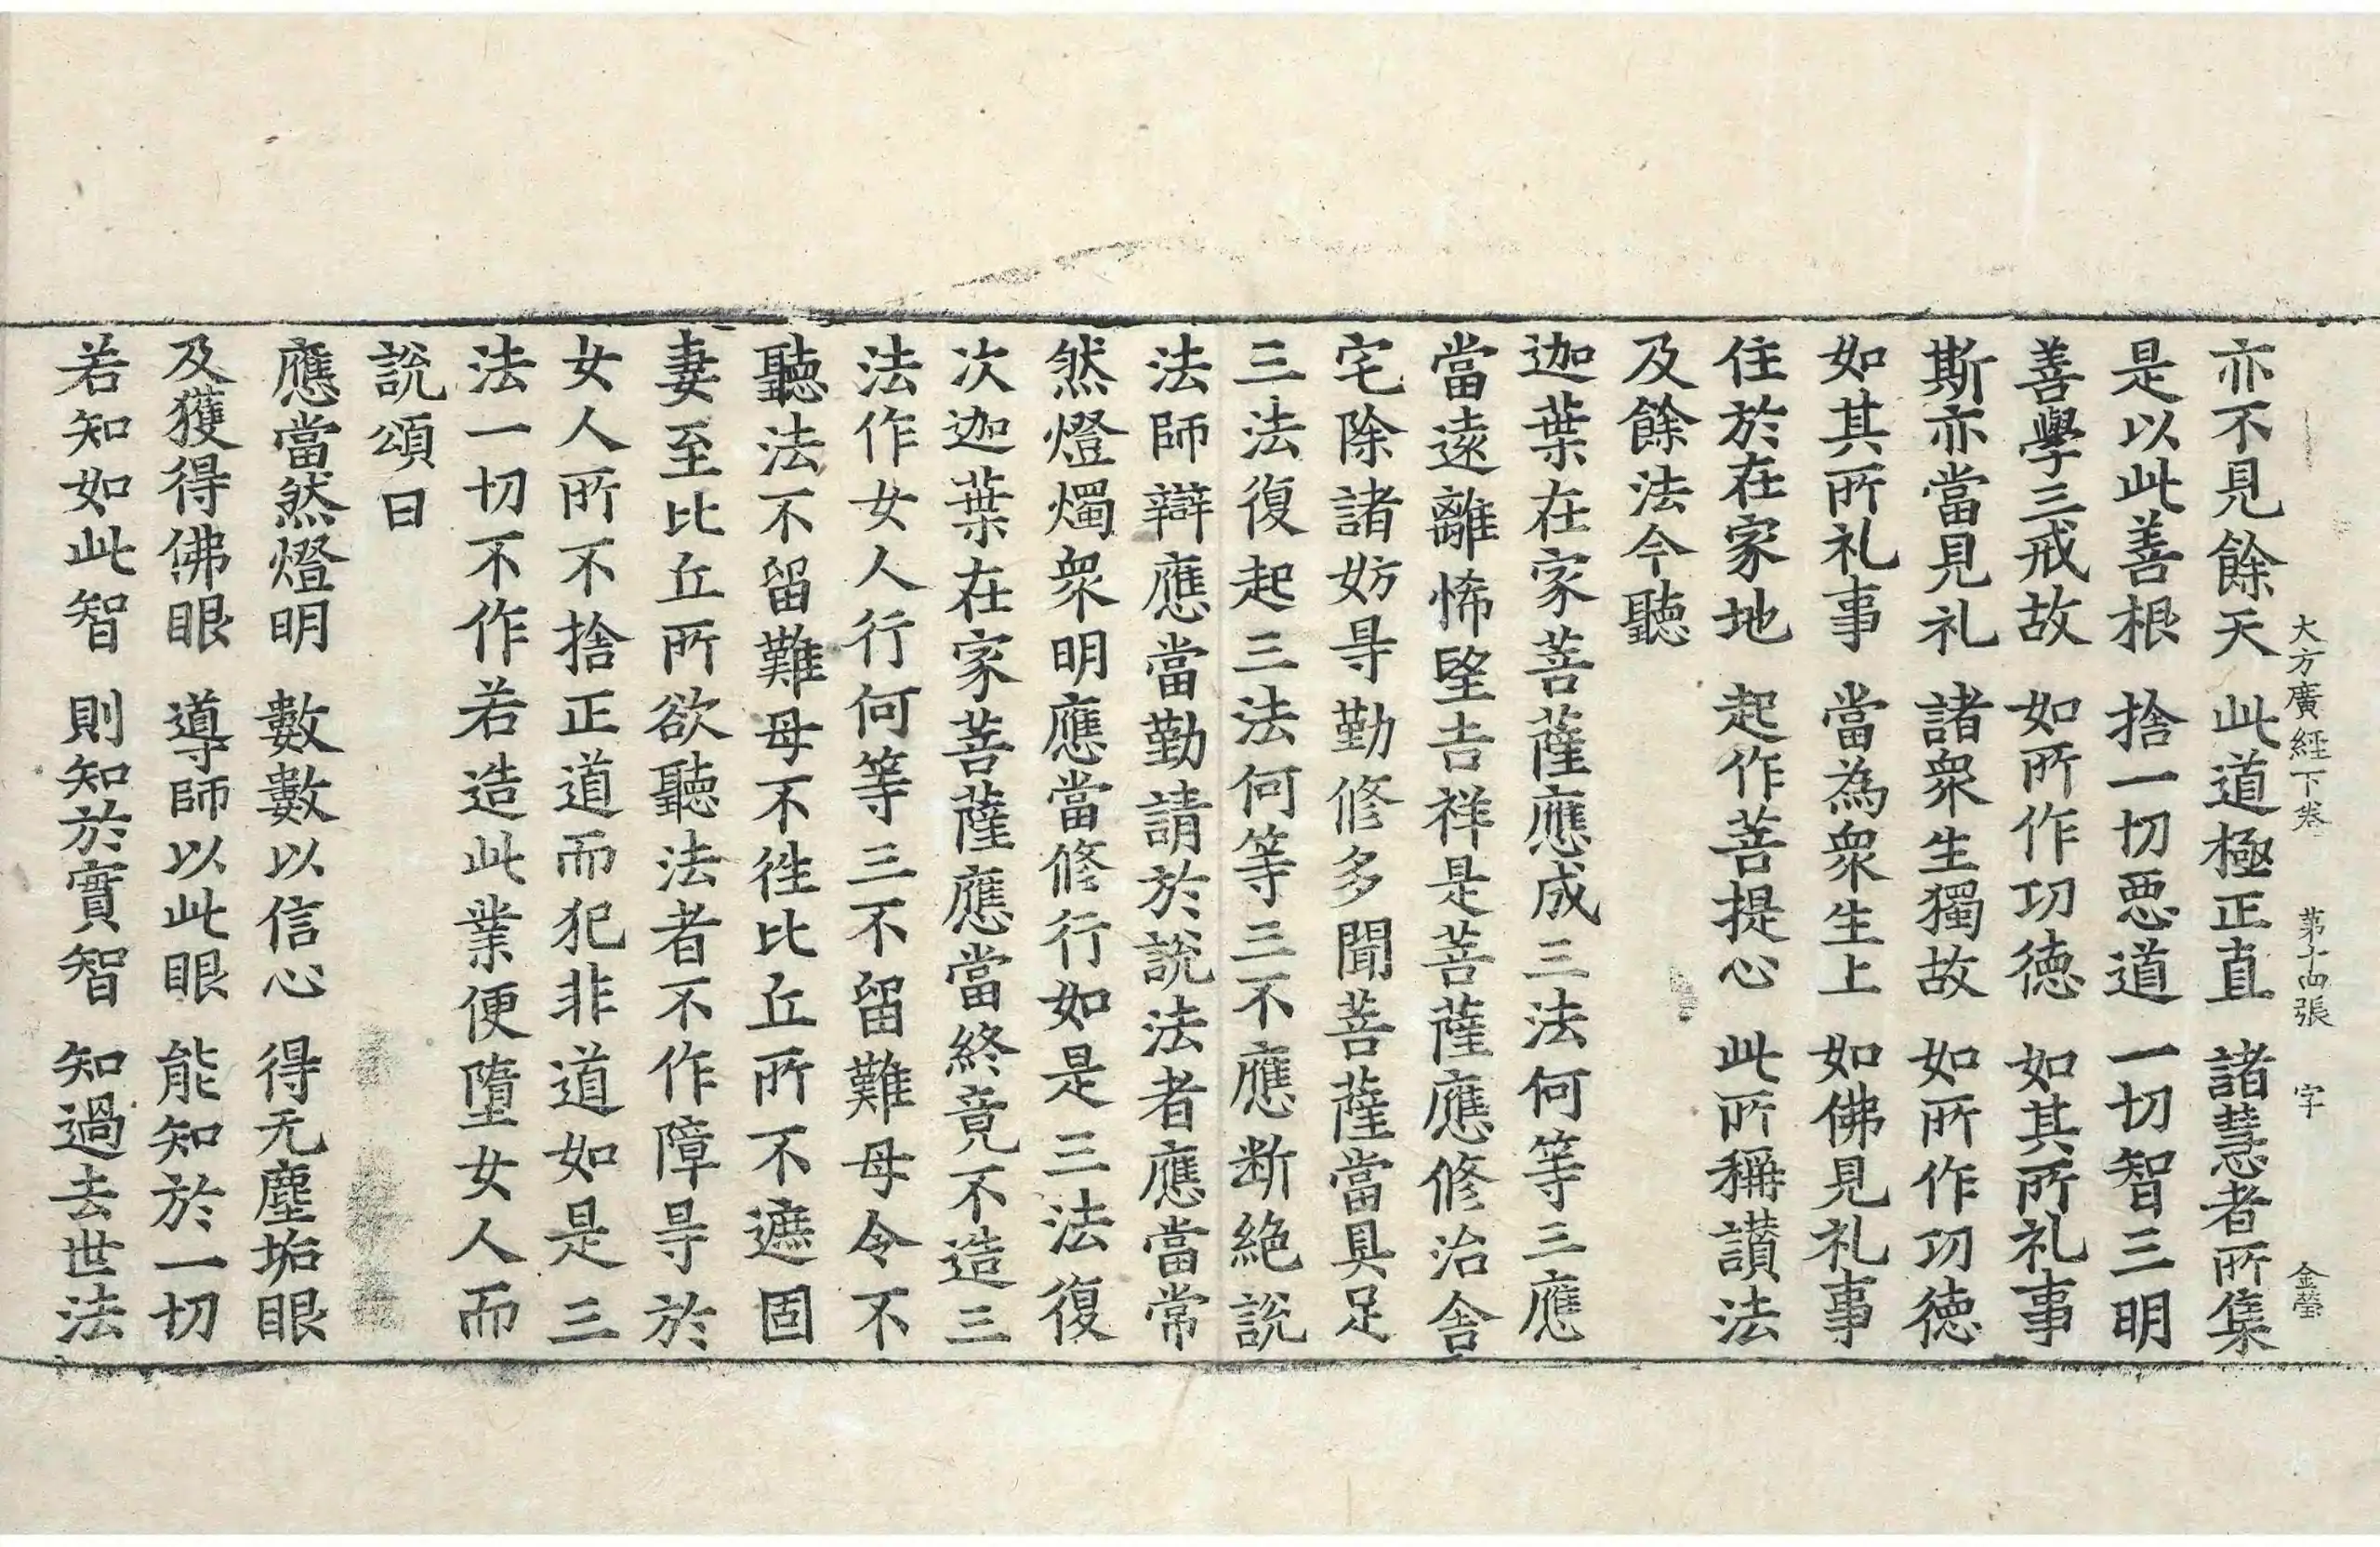 大方廣經下卷 第十四張 字 金瑩
亦不見餘天 此道極正直 諸慧者所集
是以此善根 捨一切惡道 一切智三明
善學三戒故 如所作功德 如其所礼事
斯亦當見礼 諸衆生獨故 如所作功德
如其所礼事 當為衆生上 如佛見礼事
住於在家地 起作菩提心 此所稱讃法
及餘法今聽
迦葉在家菩薩應成三法何等三應
當遠離怖望吉祥是菩薩應修治舍
宅除諸妨㝵勤修多聞菩薩當具足
三法復起三法何等三不應断絶説
法師辯應當勤請於説法者應當常
然燈燭衆明應當修行如是三法復
次迦葉在家菩薩應當終竟不造三
法作女人行何等三不留難母令不
聽法不留難母不徃比丘所不遮固
妻至比丘所欲聽法者不作障㝵於
女人所不捨正道而犯非道如是三
法一切不作若造此業便墮女人而
説頌曰
應當然燈明 數數以信心 得无塵垢眼
及獲得佛眼 導師以此眼 能知於一切
若知如此智 則知於實智 知過去世法